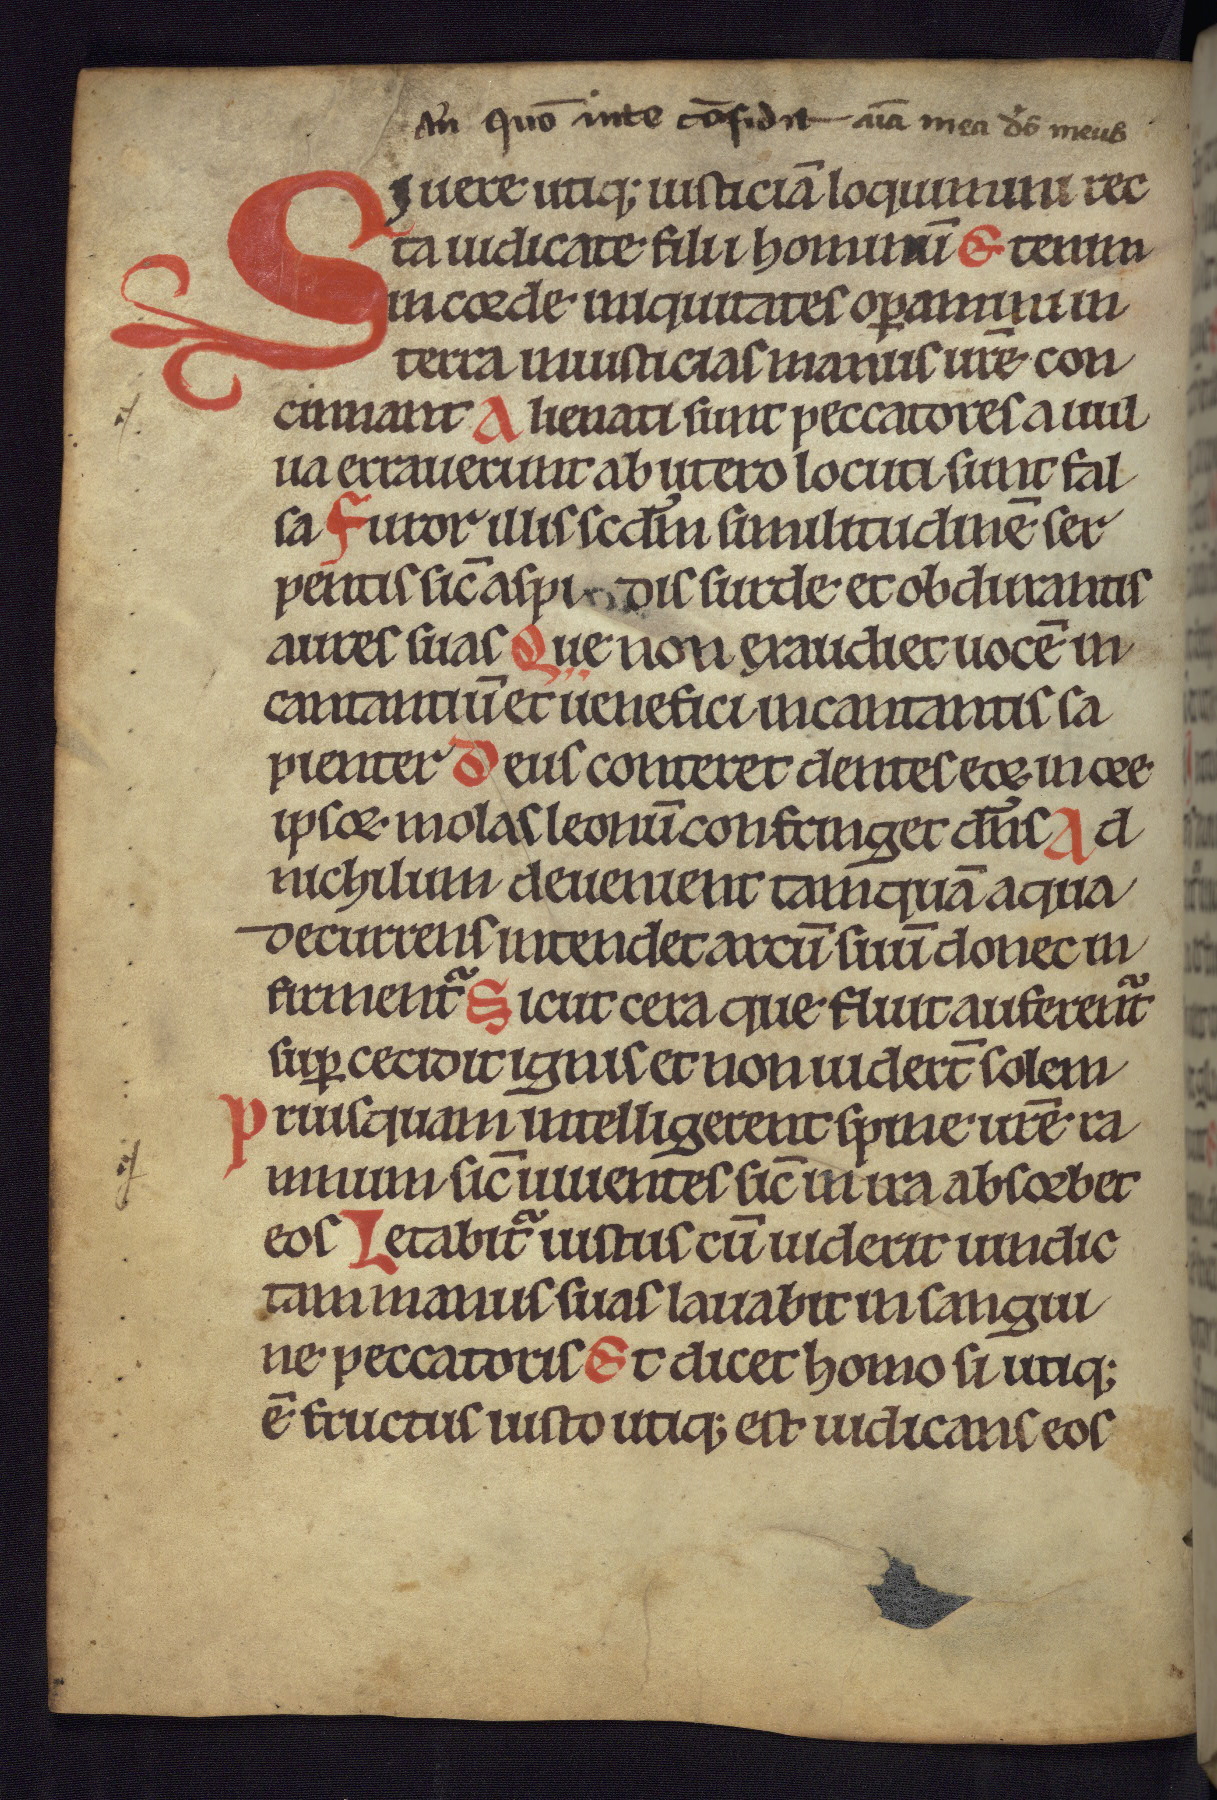 An̄ quo᷑ in te co᷑fidit ai᷑a mea ds̄ meus
Si uere utiq; iusticiā loquimini rec
ta iudicate filii hominū Etenim
in corde iniquitates oꝑamini in
terra iniusticias manus ur̄e con
cinnant Alienati sunt peccatores a uul
ua errauerunt ab utero locuti sunt fal
sa Furor illis scdm̄ similitudinē ser
pentis sic̄ aspi dis surde et obdurantis
aures suas Que non exaudiet uocē in
cantantiū et uenefici incantantis sa
pienter Deus conteret dentes eoꝝ in ore
ipsoꝝ molas leonū confringet dn̄s Ad
nichilum deuenient tamquā aqua
decurrens intendet arcū suū donec in
firment᷑ Sicut cera que fluit auferent᷑
suꝑ cecidit ignis et non uidert̄ solem
Priusquam intelligerent spine ur̄e ra
mnum sic̄ uiuentes sic̄ in ira absorbet
eos Letabit᷑ iustus cū uiderit uindic
tam manus suas lauabit in sangui
ne peccatoris Et dicet homo si utiq;
ē fructus iusto utiq; est iudicans eos